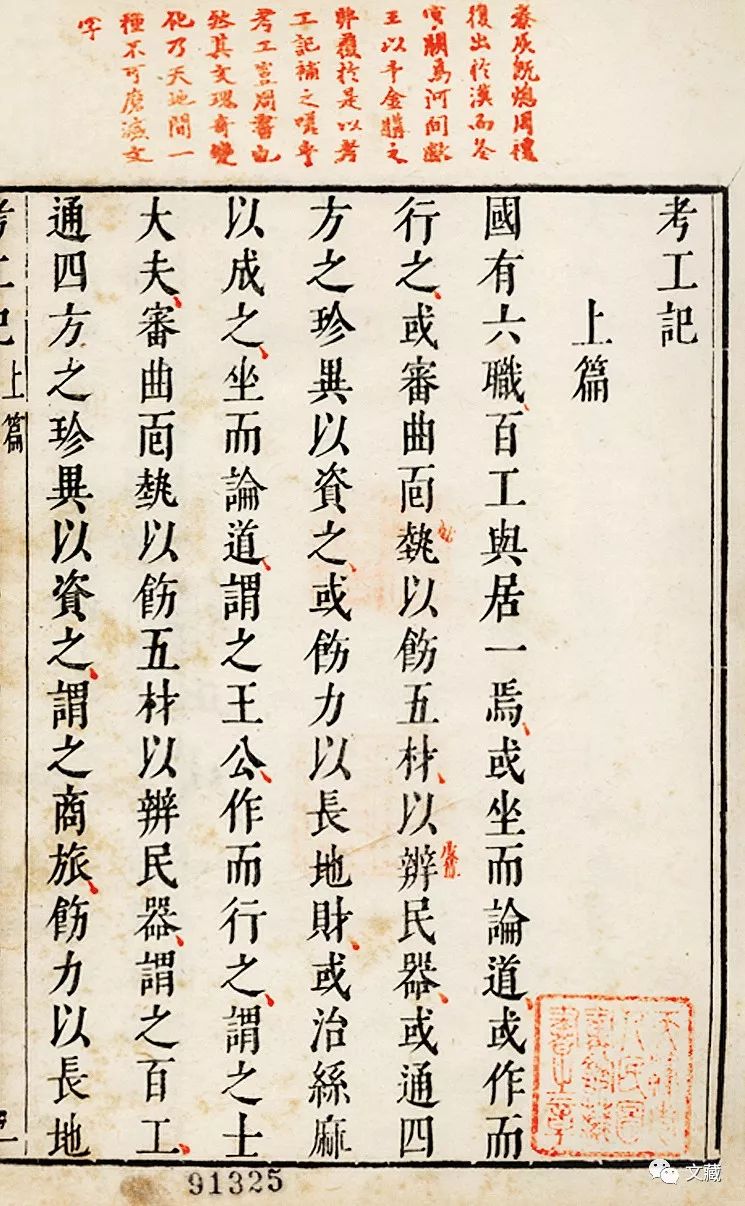 秦灰既熄周禮
復出於漢而冬
官闕焉河間獻
王以千金購之
弗獲於是以考
工記補之嗟乎
考工豈周書也
然其文瑰奇變
化乃天地間一
種不可磨滅文
字
考工記
上篇
國有六職、百工與居一焉、或坐而論道、或作而
行之、或審曲面埶以飭五材、以辨民器、或通四
方之珍異以資之、或飭力以長地財、或治絲麻
以成之、坐而論道、謂之王公、作而行之、謂之士
大夫、審曲面埶以飭五材以辨民器、謂之百工、
通四方之珍異以資之、謂之商旅、飭力以長地
考工記上篇
91325
文藏